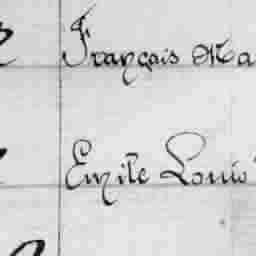 François Ma
Emile Louis